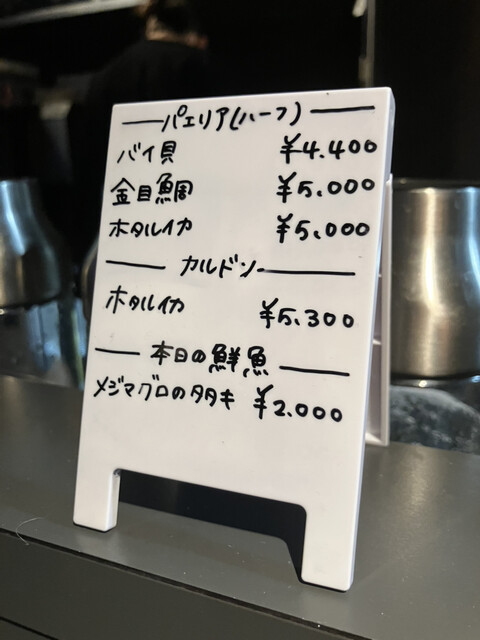 パエリア(ハーフ)
バイ貝 ¥4.400
金目鯛 ¥5.000
ホタルイカ ¥5.000
カルドソ
ホタルイカ ¥5.300
本日の鮮魚
メジマグロのタタキ ¥2.000